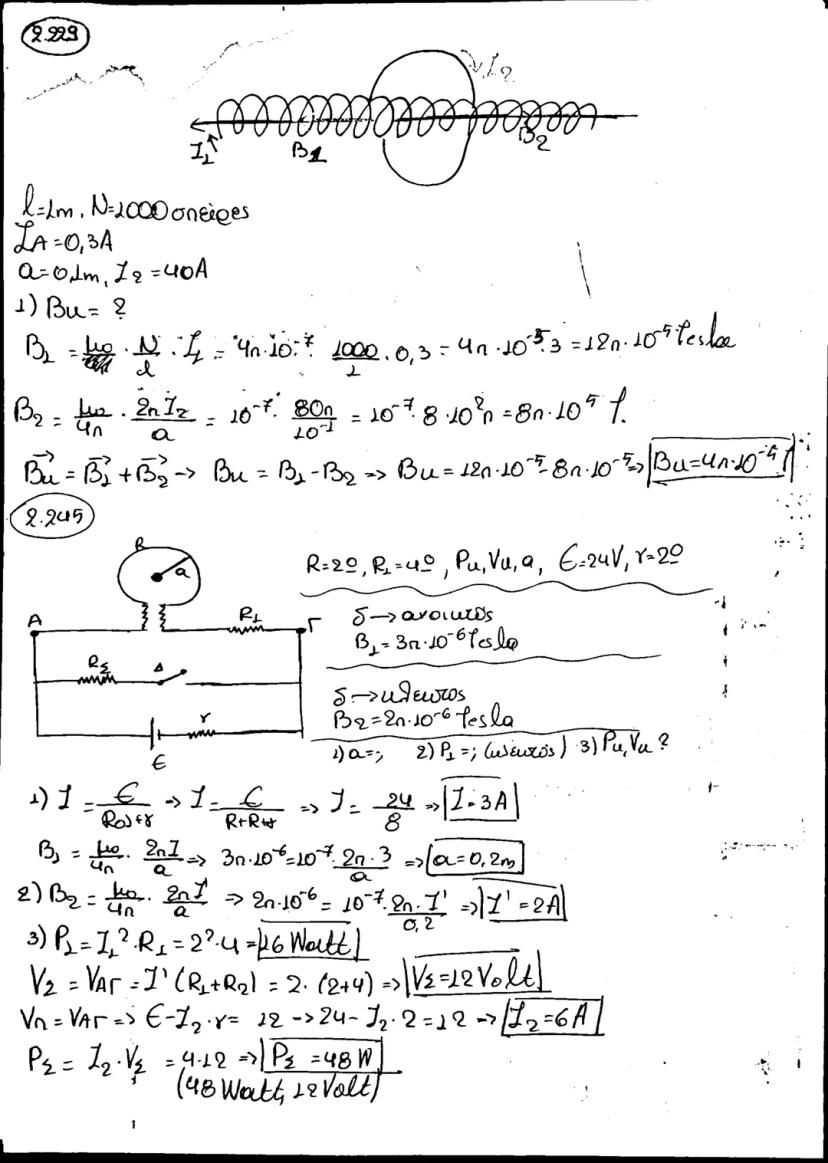 2.229
I₂
I₁ B1 B2
l=1m, N=1000 σπείρες
I_A=0,3A
a=0,1m, I₂=40A
1) Bκ= ?
B₁ = μ₀ · N/l · I₁ = 4π·10⁻⁷ · 1000/1 · 0,3 = 4π·10⁻⁵·3 = 12π·10⁻⁵ Tesla
B₂ = μ₀/4π · 2πI₂/a = 10⁻⁷ · 80π/10⁻¹ = 10⁻⁷·8·10²π = 8π·10⁵ T.
B⃗κ = B⃗₁ + B⃗₂ → Bκ = B₁-B₂ => Bκ = 12π·10⁻⁵-8π·10⁻⁵ => Bκ=4π·10⁻⁵T
2.245
R a
A R₁ Γ
R_Σ Δ
r
ε
R=2Ω, R₁=4Ω, Pκ, Vκ, a, ε=24V, r=2Ω
δ → ανοικτός
B₁=3π·10⁻⁶ Tesla
δ → κλειστός
B₂=2π·10⁻⁶ Tesla
1) a=; 2) P₁=; (κλειστός) 3) Pκ, Vκ ?
1) I = ε/(Rολ+r) → I = ε/(R+R₁+r) => I = 24/8 => I=3A
B₁ = μ₀/4π · 2πI/a => 3π·10⁻⁶=10⁻⁷ · 2π·3/a => a=0,2m
2) B₂ = μ₀/4π · 2πI'/a => 2π·10⁻⁶ = 10⁻⁷ · 2π·I'/0,2 => I'=2A
3) P₁=I₁²·R₁=2²·4=16 Watt
V₂ = V_AΓ = I'(R₁+R₂) = 2·(2+4) => V_Σ=12Volt
Vπ=V_AΓ => ε-I₂·r= 12 → 24-I₂·2=12 → I₂=6A
P_Σ = I₂·V_Σ = 4·12 => P_Σ=48W
(48 Watt, 12 Volt)